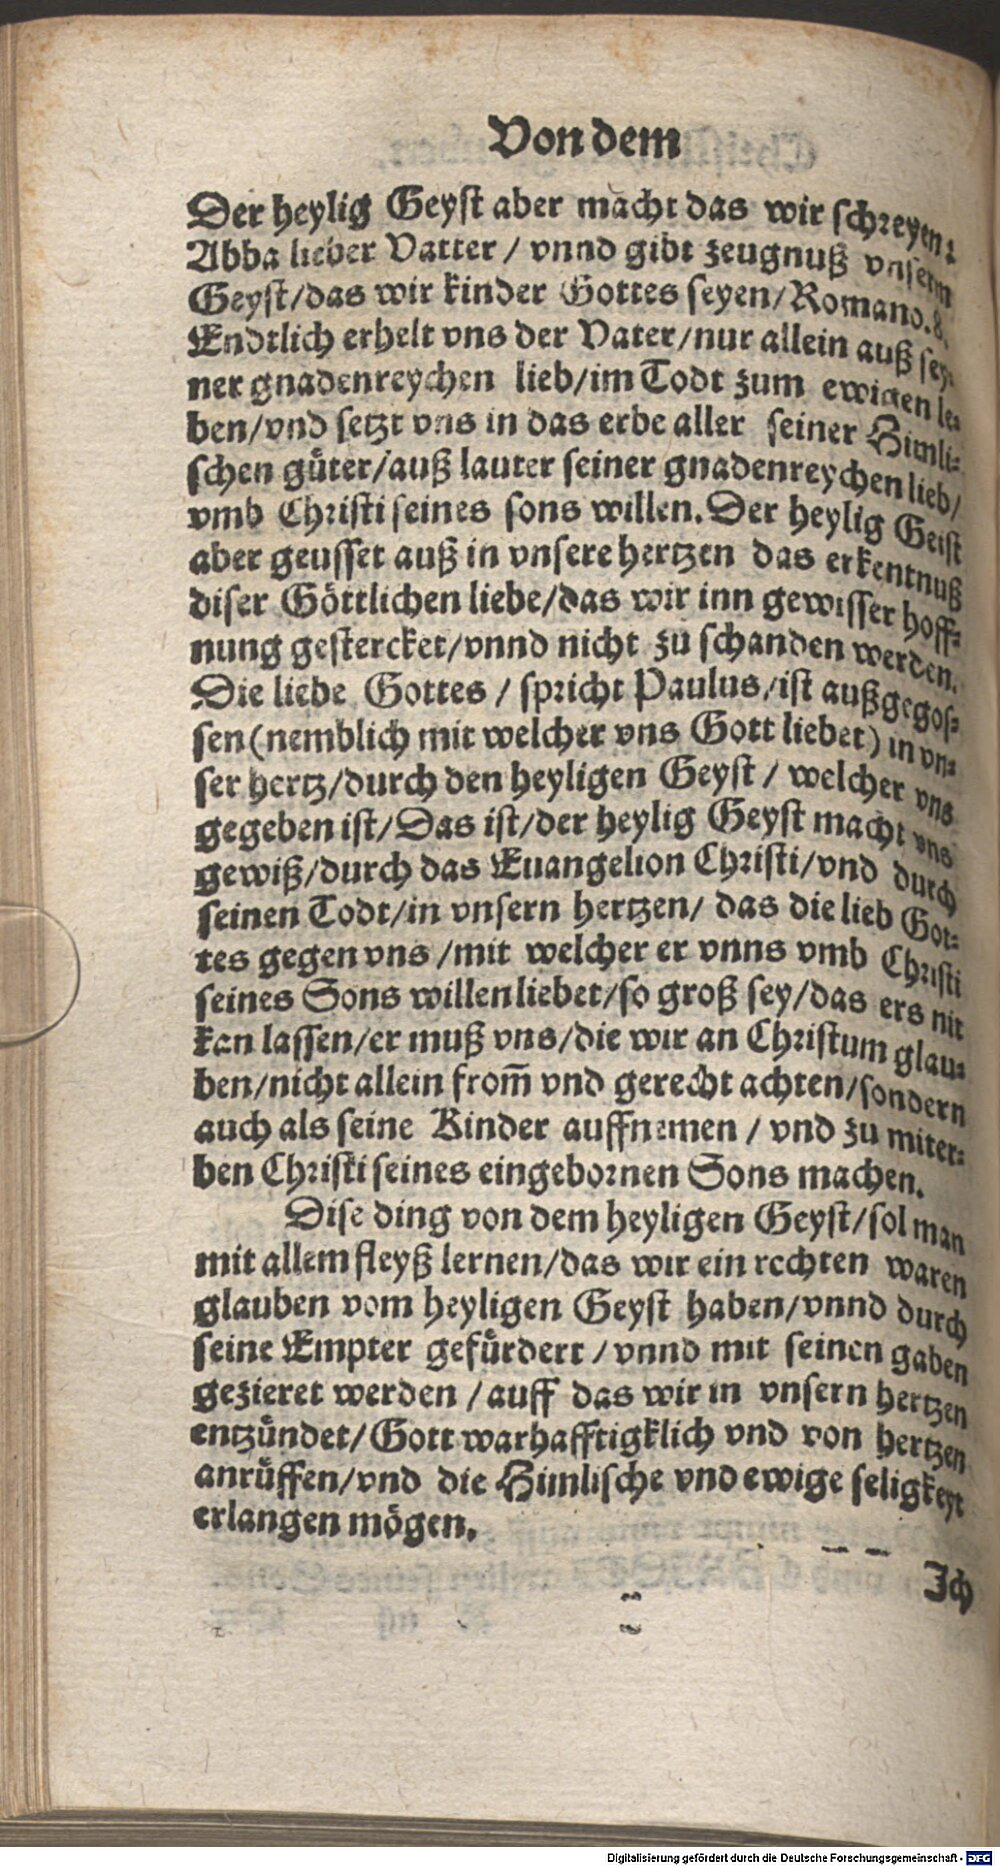 Von dem
Der heylig Geyst aber macht das wir schreyen:
Abba lieber Vatter / vnnd gibt zeugnuß vnserm
Geyst/das wir kinder Gottes seyen/Romano.8.
Endtlich erhelt vns der Vater/nur allein auß sey-
ner gnadenreychen lieb/im Todt zum ewigen le-
ben/vnd setzt vns in das erbe aller seiner Himli-
schen güter/auß lauter seiner gnadenreychen lieb/
vmb Christi seines sons willen. Der heylig Geist
aber geusset auß in vnsere hertzen das erkentnuß
diser Göttlichen liebe/das wir inn gewisser hoff-
nung gestercket/vnnd nicht zu schanden werden.
Die liebe Gottes / spricht Paulus/ist außgegos-
sen (nemblich mit welcher vns Gott liebet) in vn-
ser hertz/durch den heyligen Geyst / welcher vns
gegeben ist/Das ist/der heylig Geyst macht vns
gewiß/durch das Euangelion Christi/vnd durch
seinen Todt/in vnsern hertzen/ das die lieb Got-
tes gegen vns /mit welcher er vnns vmb Christi
seines Sons willen liebet/so groß sey/das ers nit
kan lassen/er muß vns/die wir an Christum glau-
ben/nicht allein from̄ vnd gerecht achten/sondern
auch als seine Kinder auffnemen / vnd zu miter-
ben Christi seines eingebornen Sons machen.
Dise ding von dem heyligen Geyst/sol man
mit allem fleyß lernen/das wir ein rechten waren
glauben vom heyligen Geyst haben/vnnd durch
seine Empter gefürdert / vnnd mit seinen gaben
gezieret werden /auff das wir in vnsern hertzen
entzündet/Gott warhafftigklich vnd von hertzen
anrüffen/vnd die Himlische vnd ewige seligkeyt
erlangen mögen.
Ich
Digitalisierung gefördert durch die Deutsche Forschungsgemeinschaft - DFG